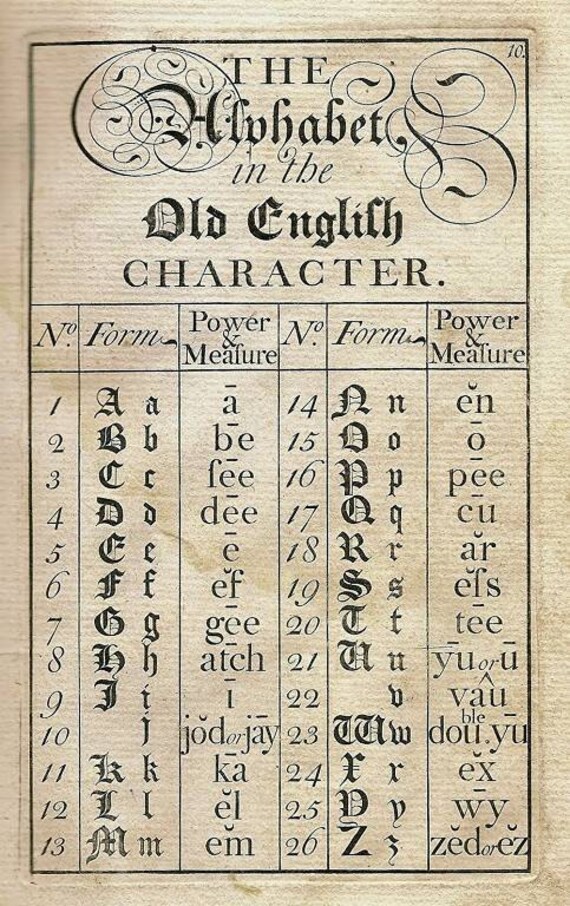 10.
THE
Alphabet
in the
Old Engliſh
CHARACTER.
Nº. Form Power & Meaſure Nº. Form Power & Meaſure
1 A a ā 14 N n ĕn
2 B b bē 15 O o ō
3 C c ſēe 16 P p pēe
4 D d dēe 17 Q q cū
5 E e ē 18 R r ăr
6 F f ĕf 19 S s ĕſs
7 G g gēe 20 T t tēe
8 H h atch 21 U u yū or ū
9 I i ī 22 v vâu
10 j jŏd or jāy 23 W w double.yū
11 K k kā 24 X x ĕx
12 L l ĕl 25 Y y wȳ
13 M m ĕm 26 Z z zĕd or ĕz